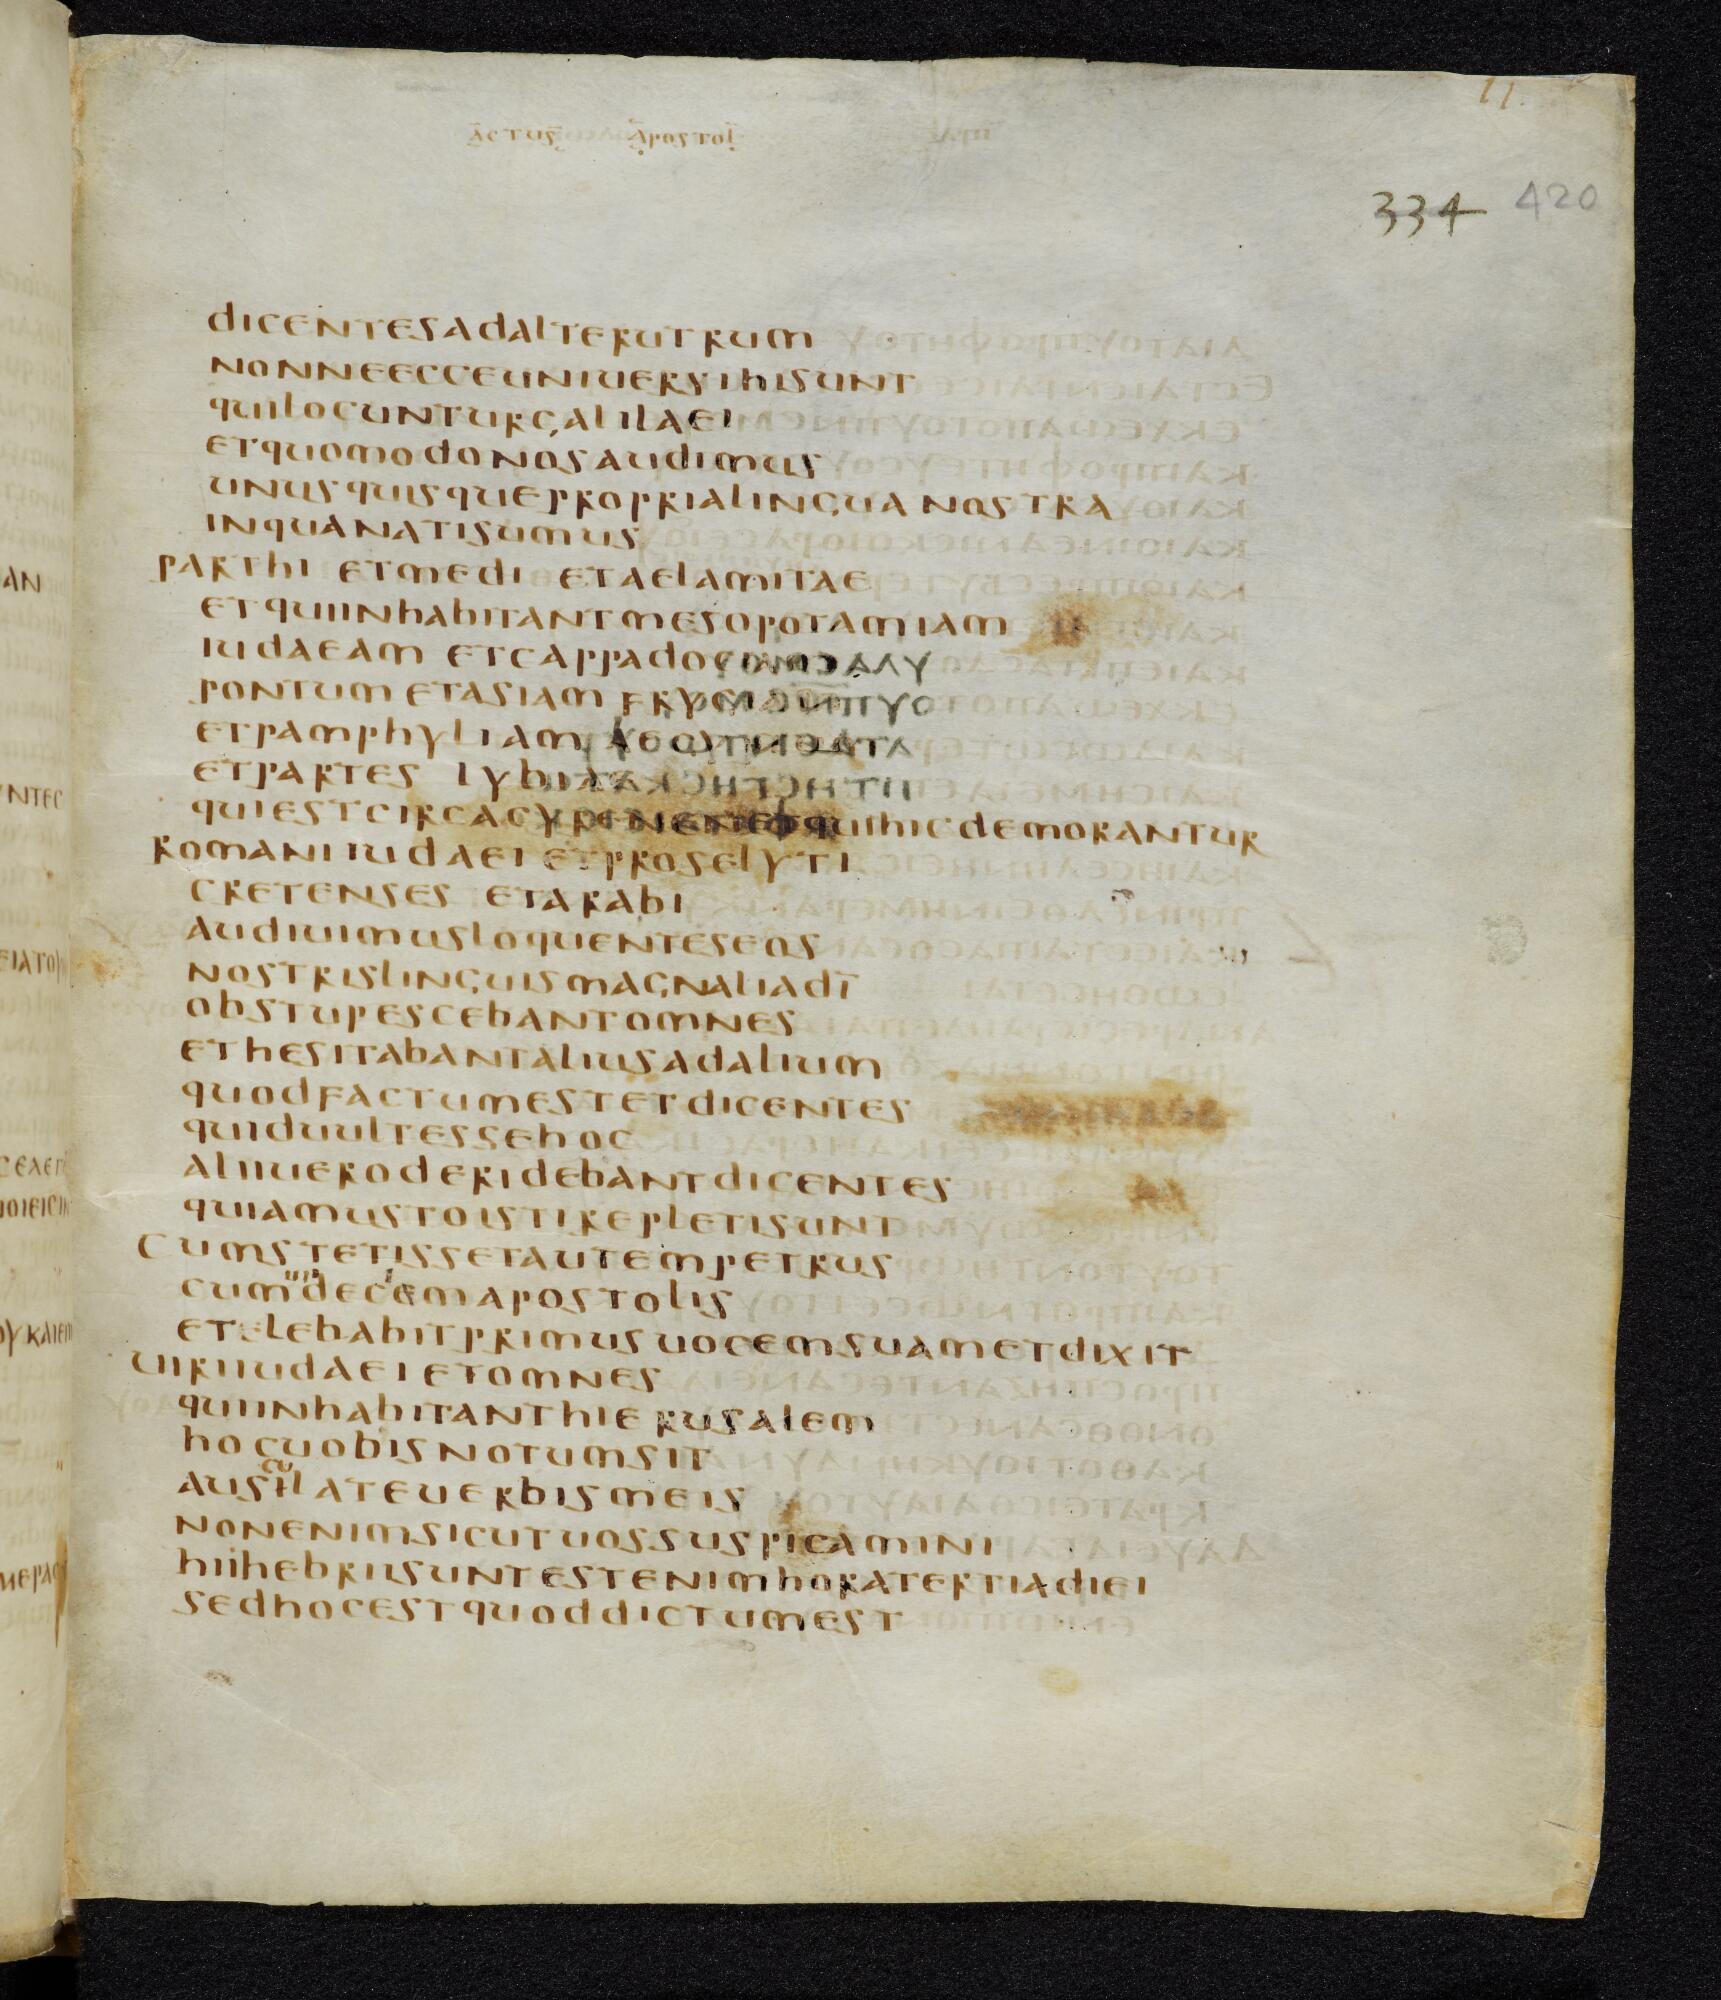 ACTUS APOSTOL
334 420
dicentes ad alterutrum
nonne ecce universi hi sunt
qui locuntur galilaei
et quomodo nos audimus
unusquisque propria lingua nostra
in qua nati sumus
parthi et medi et aelamitae
et qui inhabitant mesopotamiam
iudaeam et
pontum et asiam frygiam
et pamphyliam
et partes lybiae
qui est circa cyrenen et qui hic demorantur
romani iudaei et proselyti
cretenses et arabi
audivimus loquentes eos
nostris linguis magnalia di
obstupescebant omnes
et hesitabant alius ad alium
quod factum est et dicentes
quid vult esse hoc
alii vero deridebant dicentes
quia musto isti repleti sunt
cum stetisset autem petrus
cum decem apostolis
et elebabit primus vocem suam et dixit
viri iudaei et omnes
qui inhabitant hierusalem
hoc vobis notum sit
verbis meis
non enim sicut vos suspicamini
hii hebrii sunt est enim hora tertia diei
sed hoc est quod dictum est